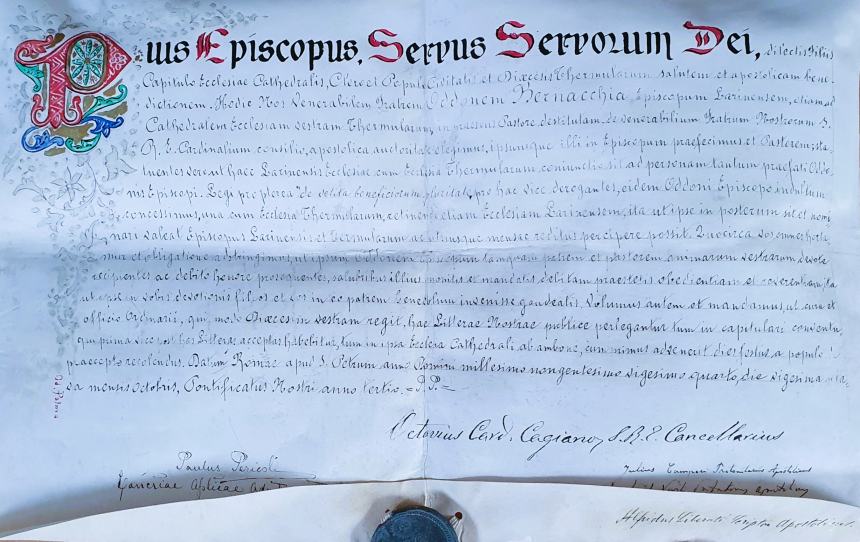 Pius Episcopus, Servus Servorum Dei, dilectis Filiis
Capitulo Ecclesiae Cathedralis, Clero et Populo Civitatis et Dioecesis Thermularum salutem et apostolicam bene-
dictionem. Hodie Nos Venerabilem Fratrem Oddonem Bernacchia, Episcopum Larinensem, etiam ad
Cathedralem Ecclesiam vestram Thermularum, in praesens Pastore destitutam, de venerabilium Fratrum Nostrorum S.
R. E. Cardinalium consilio, apostolica auctoritate elegimus, ipsumque illi in Episcopum praefecimus et Pastorem; sta-
tuentes vero ut haec Larinensis Ecclesia cum Ecclesia Thermularum coniuncta sit ad personam tantum praefati Oddo-
nis Episcopi. Legi propterea "de vetita beneficiorum pluralitate" pro hac vice derogantes, eidem Oddoni Episcopo indultum
concessimus, una cum Ecclesia Thermularum, retinendi etiam Ecclesiam Larinensem, ita ut ipse in posterum sit et nomi-
nari valeat Episcopus Larinensis et Thermularum ac utriusque mensae reditus percipere possit. Quocirca vos omnes horta-
mur et obligatione adstringimus, ut ipsum Oddonem Episcopum tamquam patrem et pastorem animarum vestrarum devote
recipientes ac debito honore prosequentes, salubribus illius monitis et mandatis debitam praestetis obedientiam et reverentiam, ita
ut ipse in vobis devotionis filios et vos in eo patrem benevolum invenisse gaudeatis. Volumus autem et mandamus, ut cura et
officio Ordinarii, qui modo Dioecesim vestram regit, hae Litterae Nostrae publice perlegantur tum in capitulari conventu,
qui prima vice post has Litteras acceptas habebitur, tum in ipsa Ecclesia Cathedrali ab ambone, cum primus advenerit dies festus a populo
praecepto recolendus. Datum Romae apud S. Petrum anno Domini millesimo nongentesimo vigesimo quarto, die vigesima
mensis Octobris, Pontificatus Nostri anno tertio.
Octavius Card. Cagiano, S.R.E. Cancellarius
Paulus Pericoli
Cancriae Aplicae
Julius Campori Protonotarius Apostolicus
Alfridus Liberati Scriptor Apostolicus